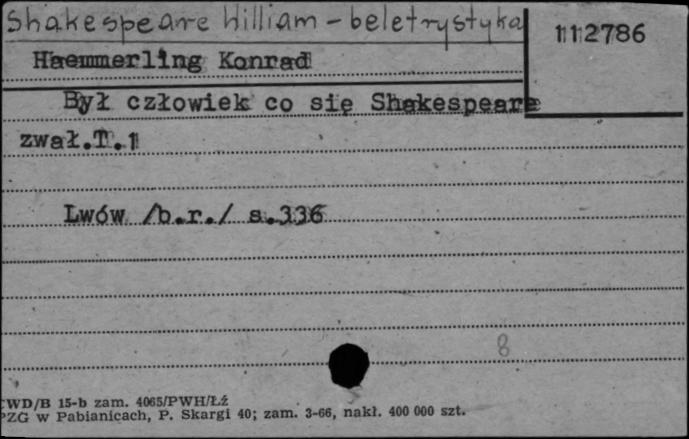 Shakespeare William - beletrystyka
112786
Haemmerling Konrad
Był człowiek co się Shakespeare
zwał.T.1
Lwów /b.r./ s.336
8
WD/B 15-b zam. 4065/PWH/Łź
PZG w Pabianicach, P. Skargi 40; zam. 3-66, nakł. 400 000 szt.